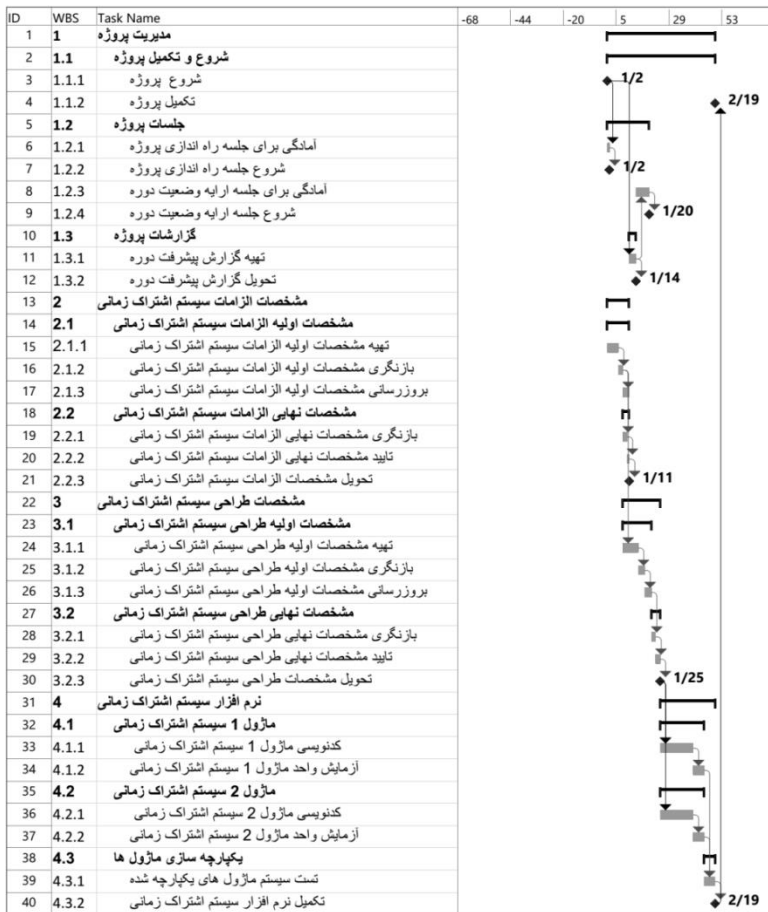 ID WBS Task Name -68 -44 -20 5 29 53
1 1 مدیریت پروژه
2 1.1 شروع و تکمیل پروژه
3 1.1.1 شروع پروژه 1/2
4 1.1.2 تکمیل پروژه 2/19
5 1.2 جلسات پروژه
6 1.2.1 آمادگی برای جلسه راه اندازی پروژه
7 1.2.2 شروع جلسه راه اندازی پروژه 1/2
8 1.2.3 آمادگی برای جلسه ارایه وضعیت دوره
9 1.2.4 شروع جلسه ارایه وضعیت دوره 1/20
10 1.3 گزارشات پروژه
11 1.3.1 تهیه گزارش پیشرفت دوره
12 1.3.2 تحویل گزارش پیشرفت دوره 1/14
13 2 مشخصات الزامات سیستم اشتراک زمانی
14 2.1 مشخصات اولیه الزامات سیستم اشتراک زمانی
15 2.1.1 تهیه مشخصات اولیه الزامات سیستم اشتراک زمانی
16 2.1.2 بازنگری مشخصات اولیه الزامات سیستم اشتراک زمانی
17 2.1.3 بروزرسانی مشخصات اولیه الزامات سیستم اشتراک زمانی
18 2.2 مشخصات نهایی الزامات سیستم اشتراک زمانی
19 2.2.1 بازنگری مشخصات نهایی الزامات سیستم اشتراک زمانی
20 2.2.2 تایید مشخصات نهایی الزامات سیستم اشتراک زمانی
21 2.2.3 تحویل مشخصات الزامات سیستم اشتراک زمانی 1/11
22 3 مشخصات طراحی سیستم اشتراک زمانی
23 3.1 مشخصات اولیه طراحی سیستم اشتراک زمانی
24 3.1.1 تهیه مشخصات اولیه طراحی سیستم اشتراک زمانی
25 3.1.2 بازنگری مشخصات اولیه طراحی سیستم اشتراک زمانی
26 3.1.3 بروزرسانی مشخصات اولیه طراحی سیستم اشتراک زمانی
27 3.2 مشخصات نهایی طراحی سیستم اشتراک زمانی
28 3.2.1 بازنگری مشخصات نهایی طراحی سیستم اشتراک زمانی
29 3.2.2 تایید مشخصات نهایی طراحی سیستم اشتراک زمانی
30 3.2.3 تحویل مشخصات طراحی سیستم اشتراک زمانی 1/25
31 4 نرم افزار سیستم اشتراک زمانی
32 4.1 ماژول 1 سیستم اشتراک زمانی
33 4.1.1 کدنویسی ماژول 1 سیستم اشتراک زمانی
34 4.1.2 آزمایش واحد ماژول 1 سیستم اشتراک زمانی
35 4.2 ماژول 2 سیستم اشتراک زمانی
36 4.2.1 کدنویسی ماژول 2 سیستم اشتراک زمانی
37 4.2.2 آزمایش واحد ماژول 2 سیستم اشتراک زمانی
38 4.3 یکپارچه سازی ماژول ها
39 4.3.1 تست سیستم ماژول های یکپارچه شده
40 4.3.2 تکمیل نرم افزار سیستم اشتراک زمانی 2/19